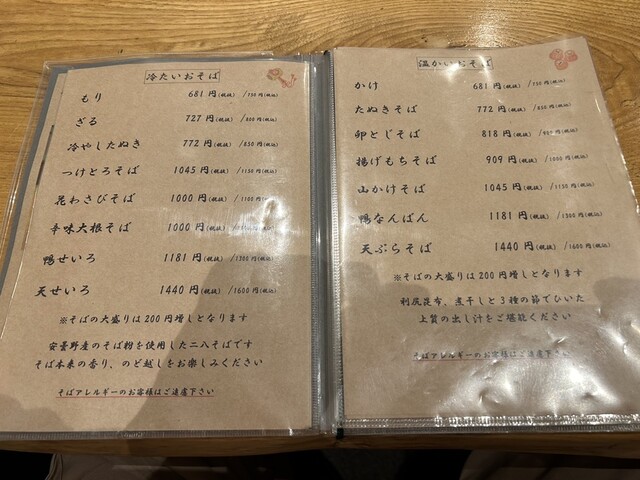 冷たいおそば
もり 681円(税抜) /750円(税込)
ざる 727円(税抜) /800円(税込)
冷やしたぬき 772円(税抜) /850円(税込)
つけとろそば 1045円(税抜) /1150円(税込)
花わさびそば 1000円(税抜) /1100円(税込)
辛味大根そば 1000円(税抜)
鴨せいろ 1181円(税抜) /1300円(税込)
天せいろ 1440円(税抜) /1600円(税込)
※そばの大盛りは200円増しとなります
安曇野産のそば粉を使用した二八そばです
そば本来の香り、のど越しをお楽しみください
そばアレルギーのお客様はご遠慮下さい
温かいおそば
かけ 681円(税抜) /750円(税込)
たぬきそば 772円(税抜) /850円(税込)
卵とじそば 818円(税抜) /900円(税込)
揚げもちそば 909円(税抜) /1000円(税込)
山かけそば 1045円(税抜) /1150円(税込)
鴨なんばん 1181円(税抜) /1300円(税込)
天ぷらそば 1440円(税抜) /1600円(税込)
※そばの大盛りは200円増しとなります
利尻昆布、煮干しと3種の節でひいた
上質の出し汁をご堪能ください
そばアレルギーのお客様はご遠慮下さい